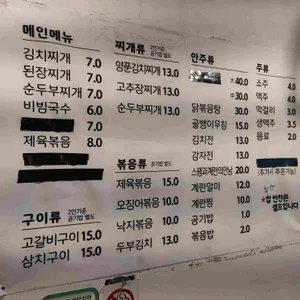 메인메뉴
김치찌개 7.0
된장찌개 7.0
순두부찌개 7.0
비빔국수 6.0
7.0
제육볶음 8.0
구이류 2인기준 공기밥 별도
고갈비구이 15.0
삼치구이 15.0
찌개류 2인기준 공기밥 별도
양푼김치찌개 13.0
고추장찌개 13.0
순두부찌개 13.0
볶음류 공기밥 별도
제육볶음 15.0
오징어볶음 10.0
낙지볶음 10.0
두부김치 13.0
안주류
대 40.0
중 30.0
닭볶음탕 30.0
골뱅이무침 15.0
김치전 13.0
감자전 13.0
스팸과계란의만남 20.0
계란말이 12.0
계란찜 10.0
공기밥 1.0
볶음밥 2.0
주류
소주 4.0
맥주 4.0
막걸리 3.0
생맥주 3.5
음료 2.0
(추가시 주문가능)
*밥 반찬은
셀프입니다